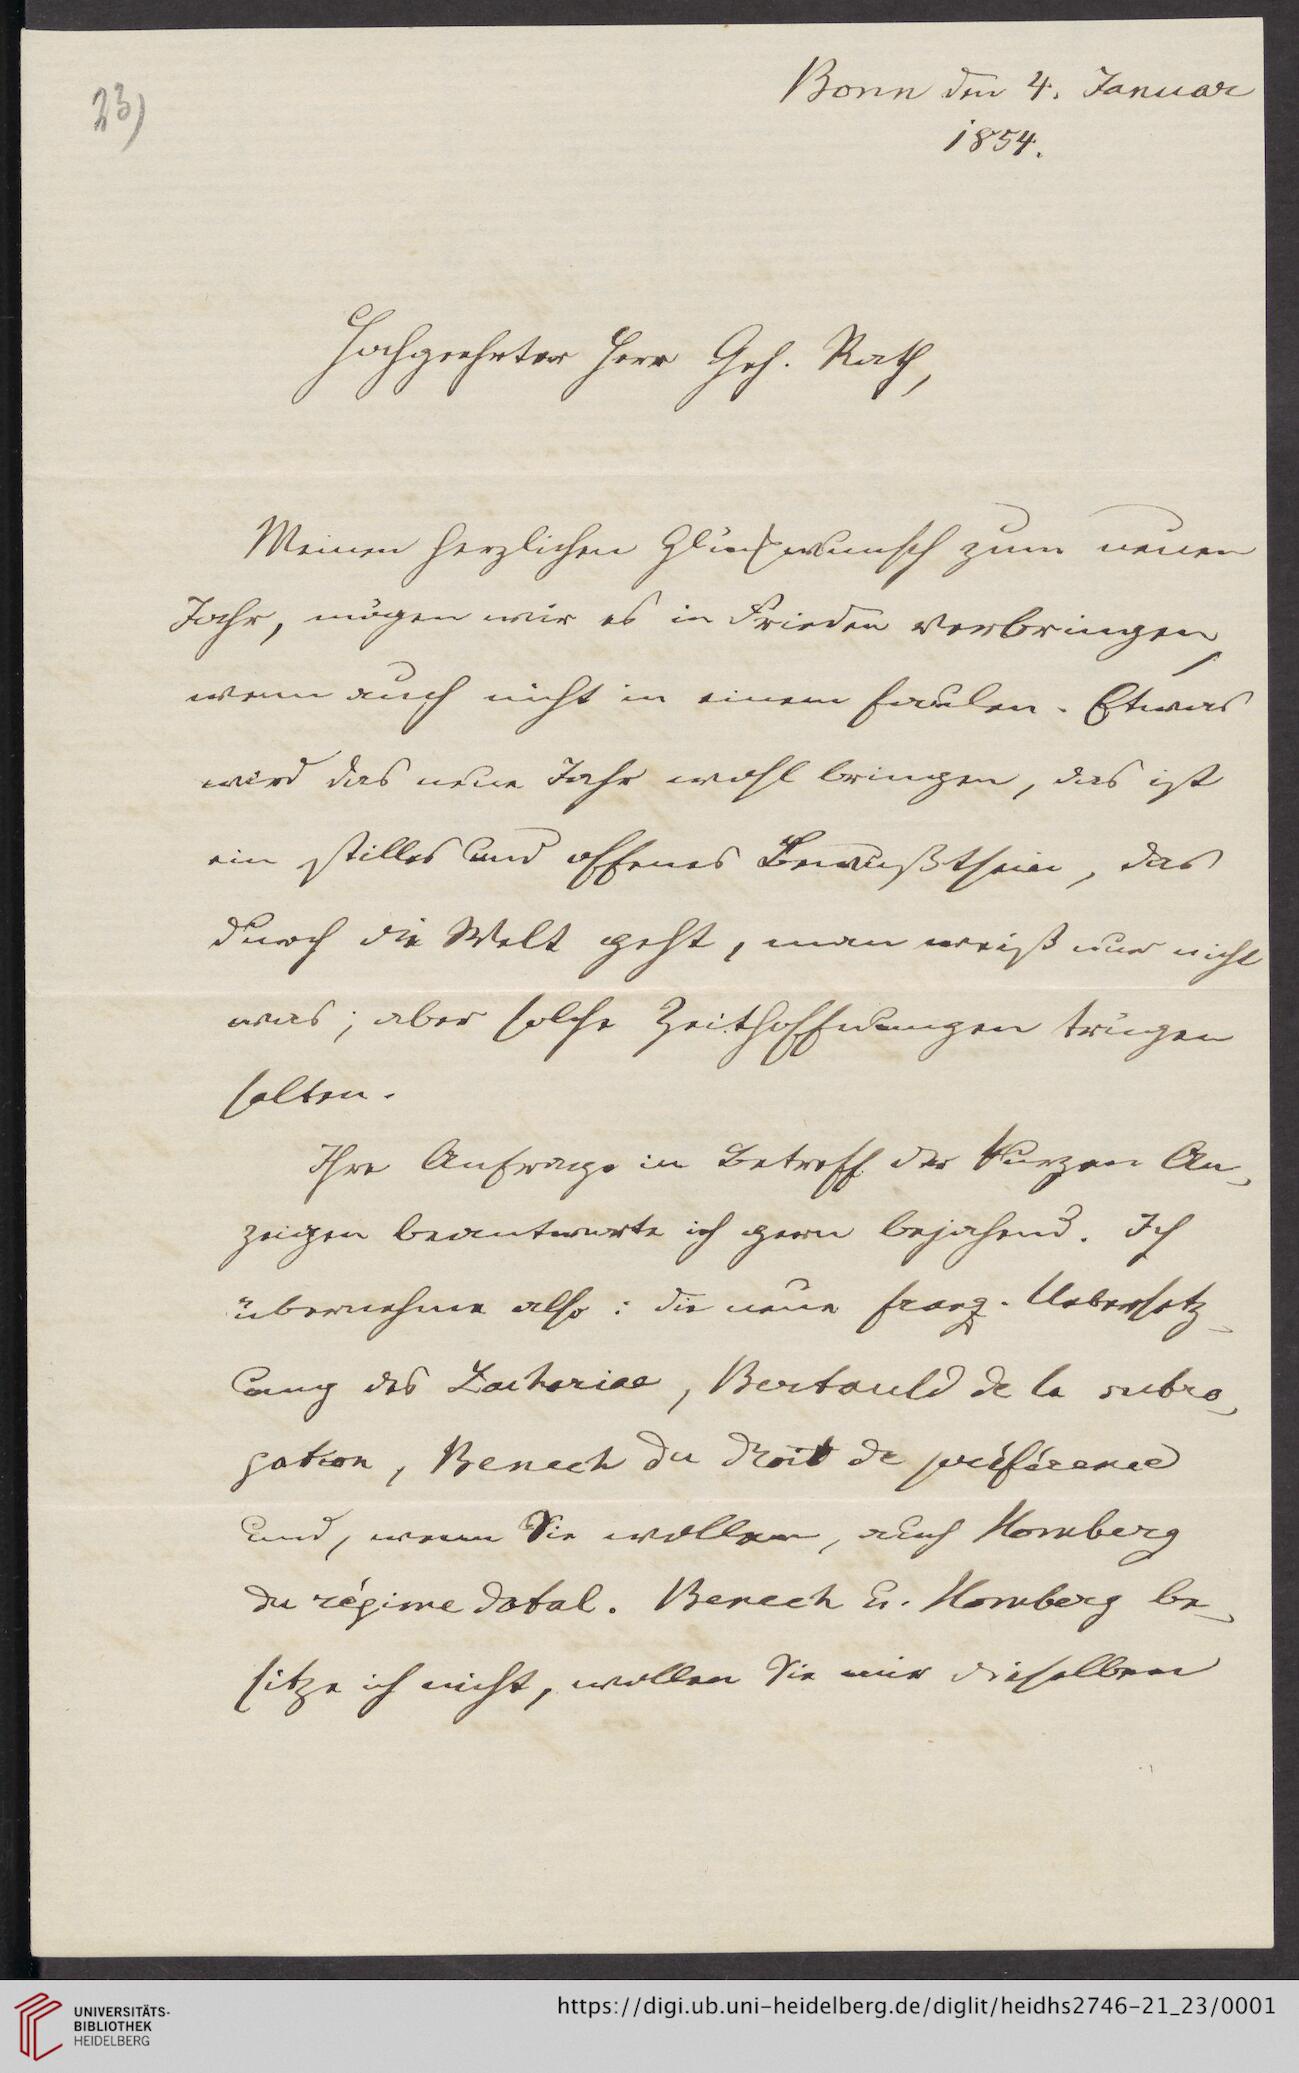 23)
Bonn den 4. Januar
1854.
Hochgeehrter Herr Geh. Rath,
Meinen herzlichen Glückwunsch zum neuen
Jahr, mögen wir es in Frieden verbringen,
wenn auch nicht in einem faulen. Etwas
wird das neue Jahr wohl bringen, das ist
ein stilles und offenes Bewußtsein, das
durch die Welt geht, man weiß nur nicht
was; aber solche Zeithoffnungen trügen
selten.
Ihre Anfrage in Betreff der Kurzen An-
zeigen beantworte ich gern bejahend. Ich
übernehme also: die neue franz. Uebersetz-
ung des Zachariae, Bertauld de la subro-
gation, Benech du droit de préférence
und, wenn Sie wollen, auch Homberg
du régime dotal. Benech u. Homberg be-
sitze ich nicht, wollen Sie mir dieselben
UNIVERSITÄTS-
BIBLIOTHEK
HEIDELBERG
https://digi.ub.uni-heidelberg.de/diglit/heidhs2746-21_23/0001